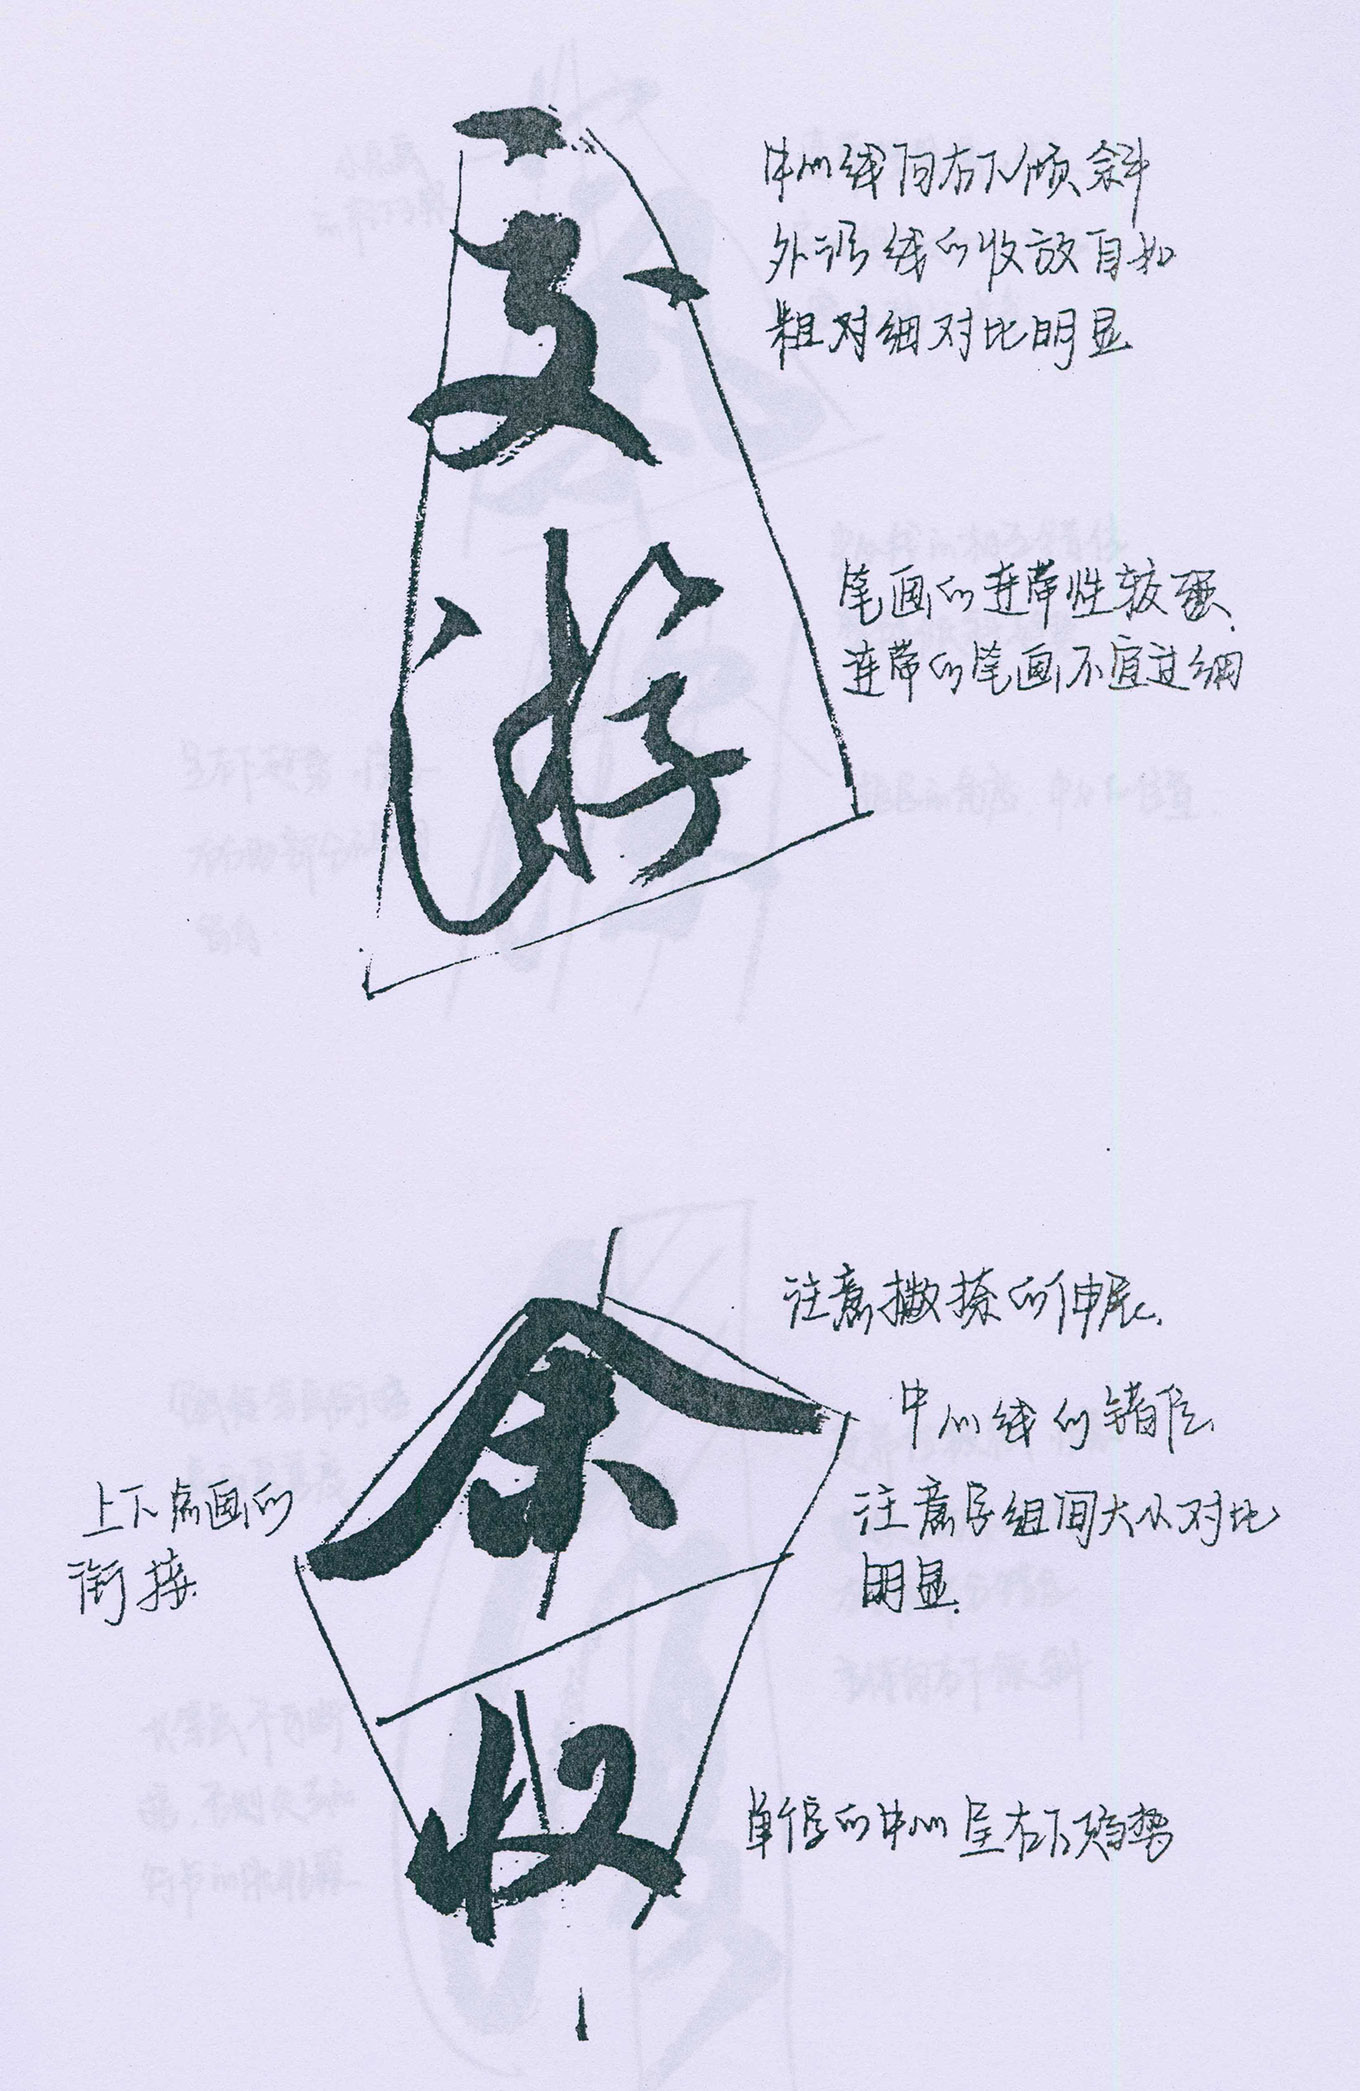 中心线向右下倾斜
外轮线的收放自如
粗对细对比明显
游
笔画的连带性较强.
连带的笔画不宜过细
注意撇捺的伸展.
中心线的错位.
余
上下点画的
衔接.
注意字组间大小对比
明显.
收
单字的中心呈右下趋势